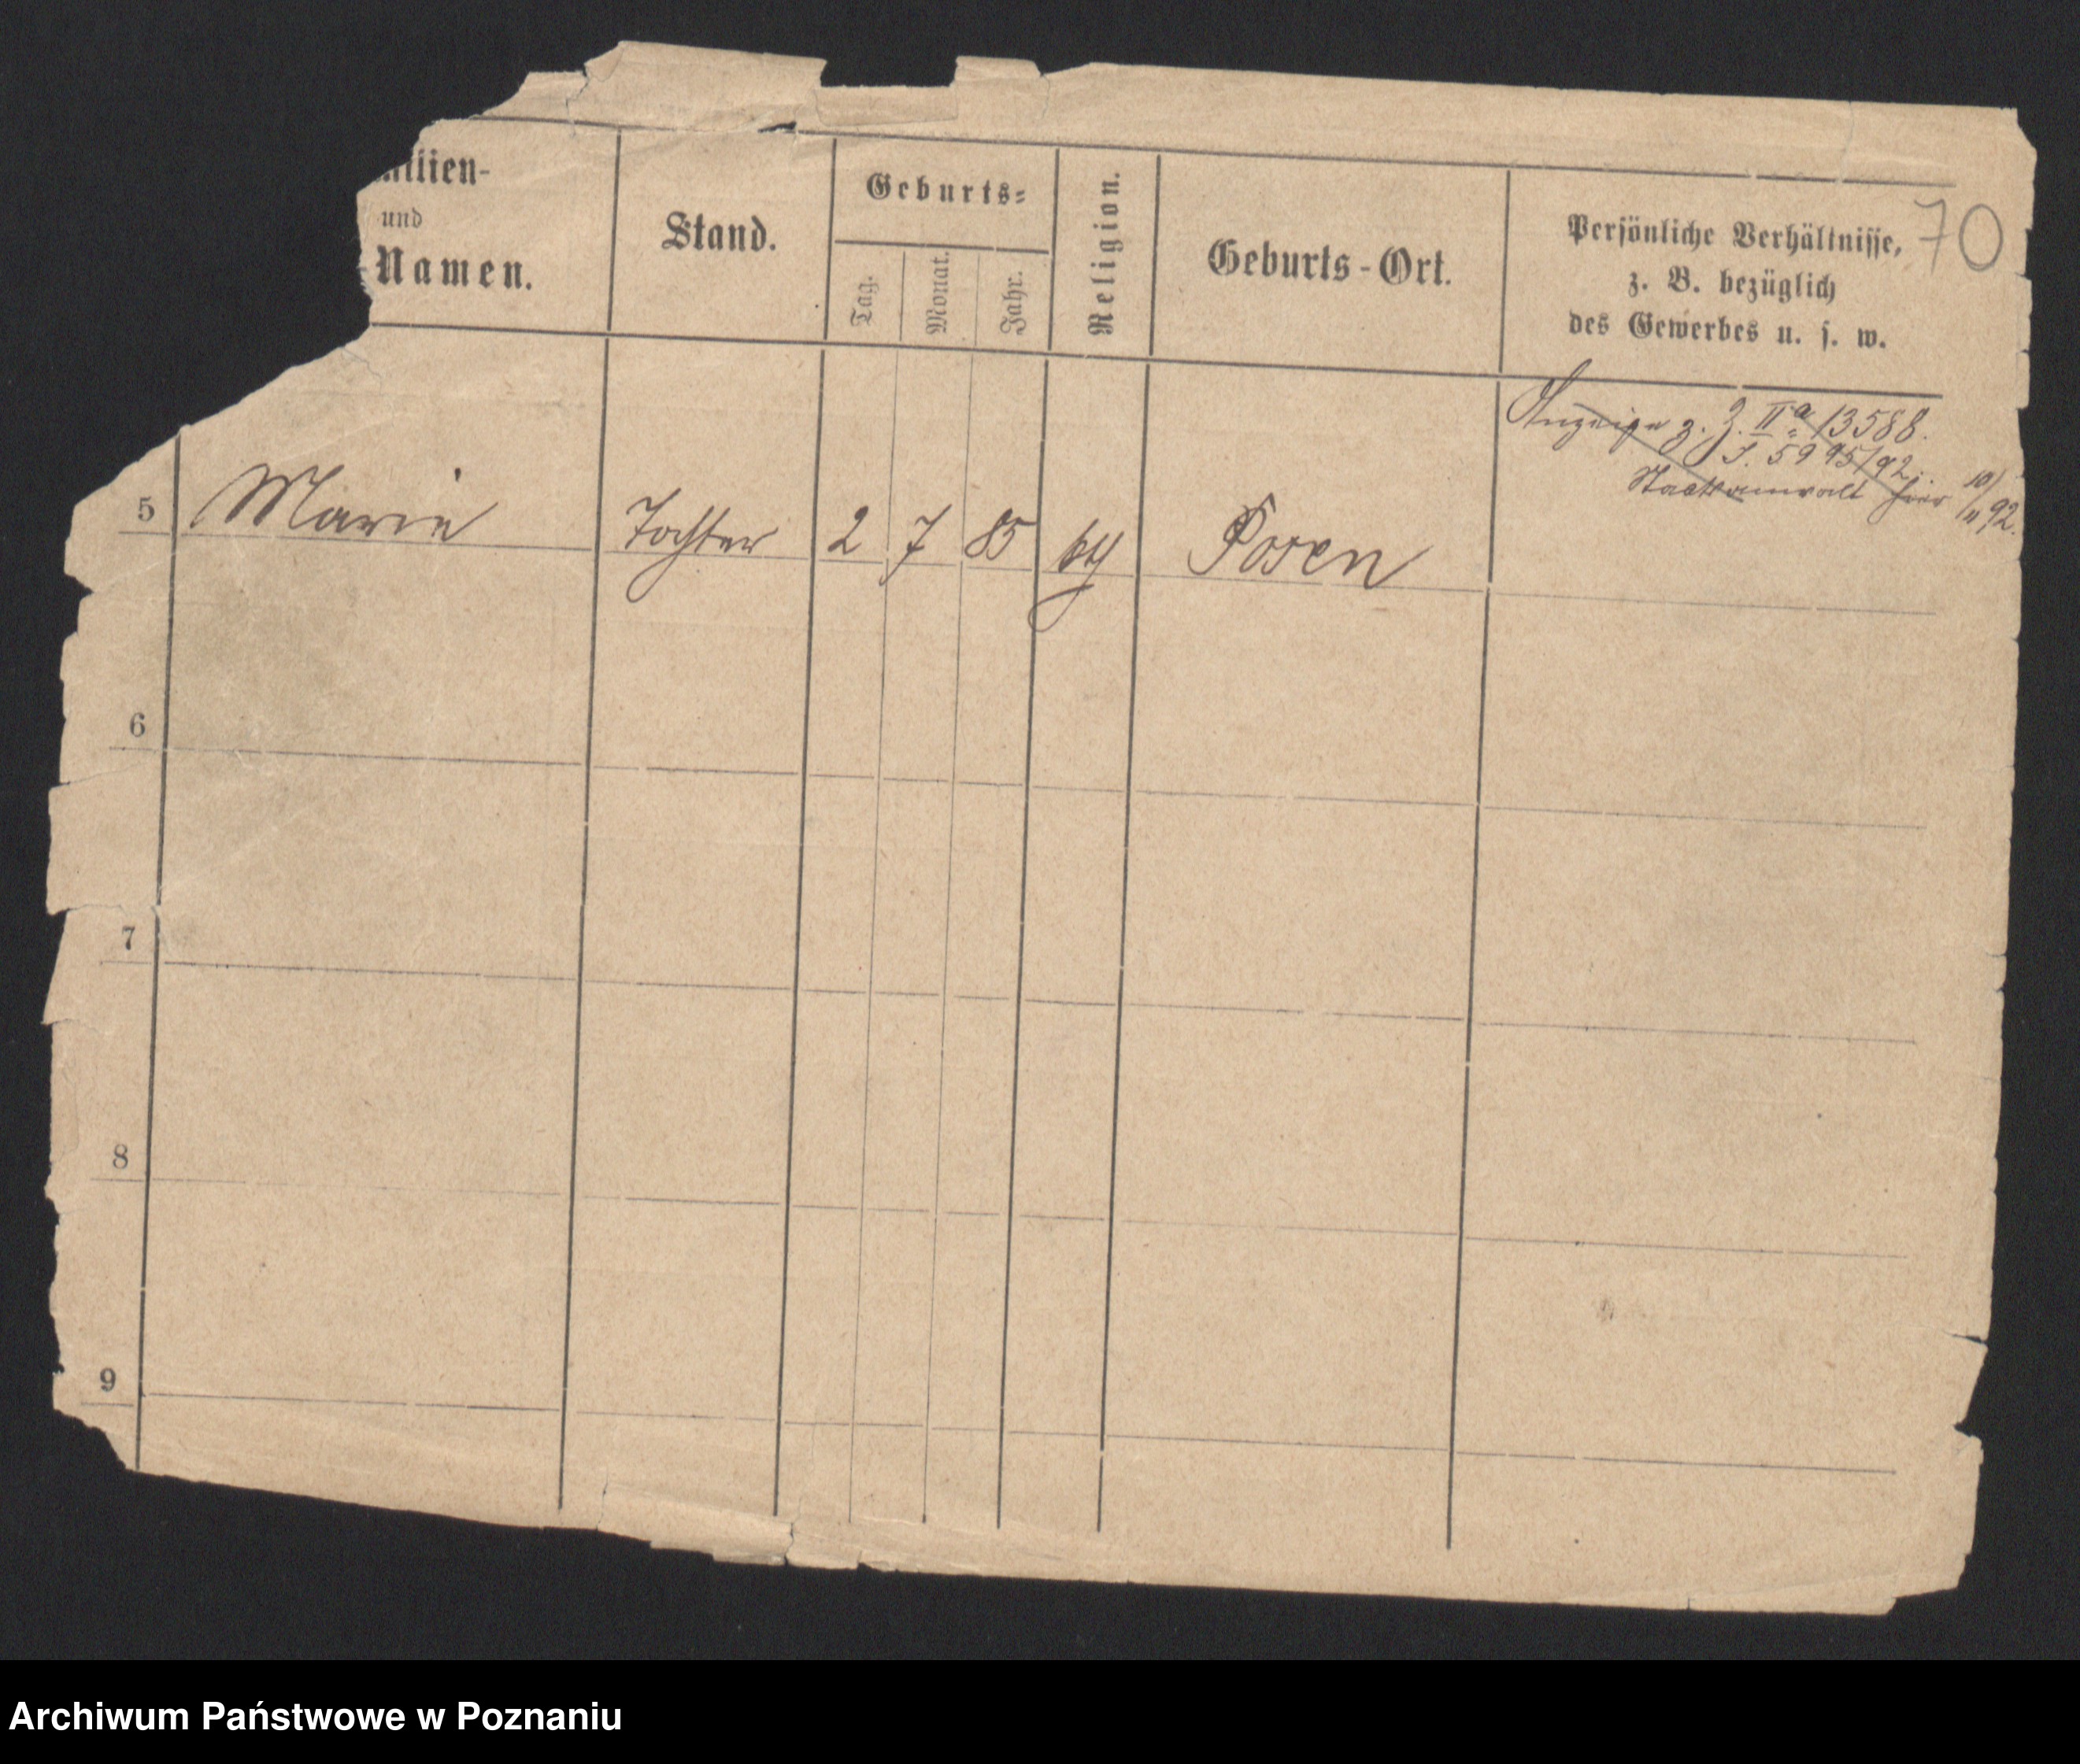 milien-
und
-Namen.
Stand.
Geburts-
Tag.
Monat.
Jahr.
Religion.
Geburts-Ort.
Persönliche Verhältnisse,
z. B. bezüglich
des Gewerbes u. s. w.
70
Anzeige z. J. IIa 13588.
J. 5995/92.
Staatsanwalt hier 10/11 92.
5 Marie Tochter 2 7 85 Posen
6
7
8
9
Archiwum Państwowe w Poznaniu